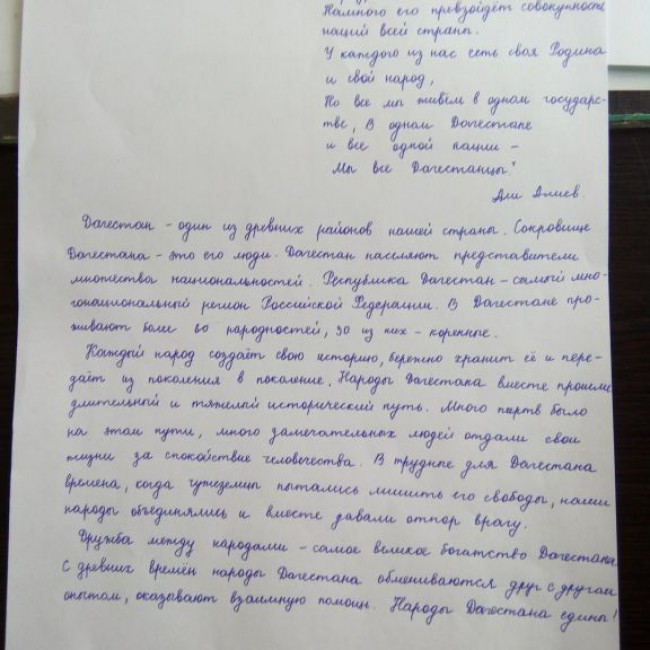 Намного его превзойдёт совокупность
наций всей страны.
У каждого из нас есть своя Родина
и свой народ,
Но все мы живём в одном государс-
тве, В одном Дагестане
и все одной нации –
Мы все Дагестанцы"
Али Алиев.
Дагестан – один из древних районов нашей страны. Сокровище
Дагестана – это его люди. Дагестан населяют представители
множества национальностей. Республика Дагестан – самый мно-
гонациональный регион Российской Федерации. В Дагестане про-
живают более 60 народностей, 30 из них – коренные.
Каждый народ создаёт свою историю, бережно хранит её и пере-
даёт из поколения в поколение. Народы Дагестана вместе прошли
длительный и тяжелый исторический путь. Много жертв было
на этом пути, много замечательных людей отдали свои
жизни за спокойствие человечества. В трудные для Дагестана
времена, когда чужеземцы пытались лишить его свободы, наши
народы объединялись и вместе давали отпор врагу.
Дружба между народами – самое великое богатство Дагестана
С древних времён народы Дагестана обмениваются друг с другом
опытом, оказывают взаимную помощь. Народы Дагестана едины!